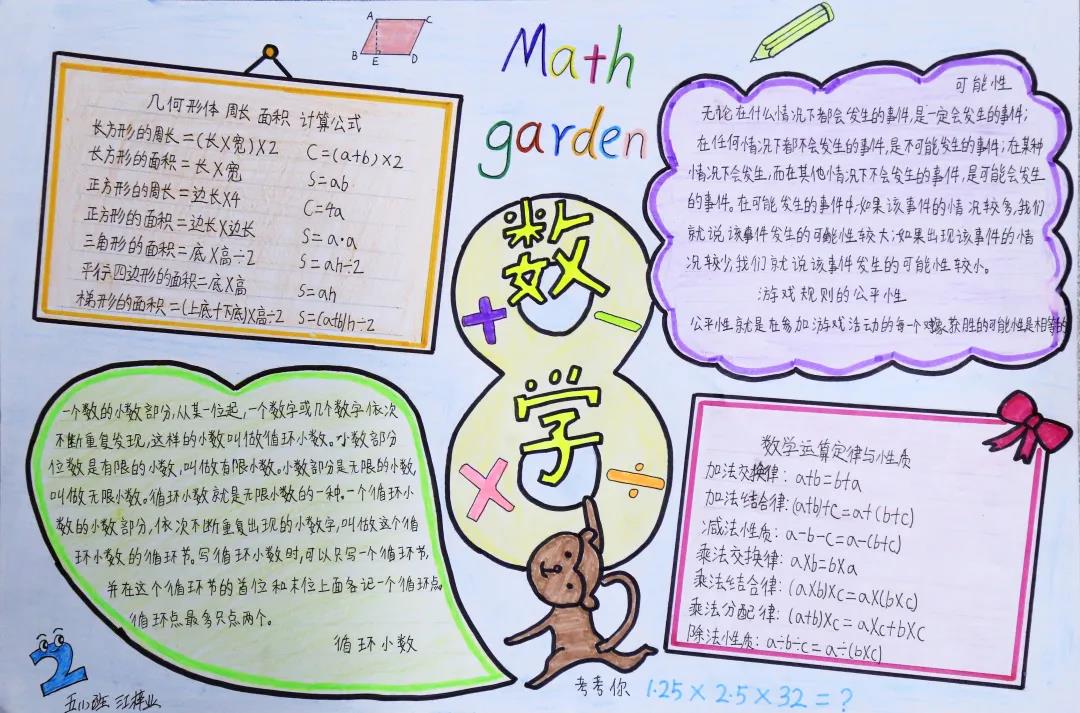 Math
garden
A C
B E D
几何形体 周长 面积 计算公式
长方形的周长=(长X宽)X2 C=(a+b)×2
长方形的面积=长X宽 S=ab
正方形的周长=边长X4 C=4a
正方形的面积=边长X边长 S=a·a
三角形的面积=底X高÷2 S=ah÷2
平行四边形的面积=底X高 S=ah
梯形的面积=(上底+下底)X高÷2 S=(a+b)h÷2
可能性
无论在什么情况下都会发生的事件,是一定会发生的事件;
在任何情况下都不会发生的事件,是不可能发生的事件;在某种
情况下会发生,而在其他情况下不会发生的事件,是可能会发生
的事件。在可能发生的事件中,如果该事件的情况较多,我们
就说该事件发生的可能性较大;如果出现该事件的情
况较少,我们就说该事件发生的可能性较小。
游戏规则的公平性
公平性就是在参加游戏活动的每一个对象获胜的可能性是相等的
数
+ −
学
× ÷
一个数的小数部分,从某一位起,一个数字或几个数字依次
不断重复发现,这样的小数叫做循环小数。小数部分
位数是有限的小数,叫做有限小数。小数部分是无限的小数,
叫做无限小数。循环小数就是无限小数的一种。一个循环小
数的小数部分,依次不断重复出现的小数字,叫做这个循
环小数的循环节。写循环小数时,可以只写一个循环节,
并在这个循环节的首位和末位上面各记一个循环点,
循环点最多只点两个。
循环小数
数学运算定律与性质
加法交换律: a+b=b+a
加法结合律: (a+b)+c=a+(b+c)
减法性质: a-b-c=a-(b+c)
乘法交换律: aXb=bXa
乘法结合律: (aXb)Xc=aX(bXc)
乘法分配律: (a+b)Xc=aXc+bXc
除法性质: a÷b÷c=a÷(bXc)
2
考考你 1.25×2.5×32=?